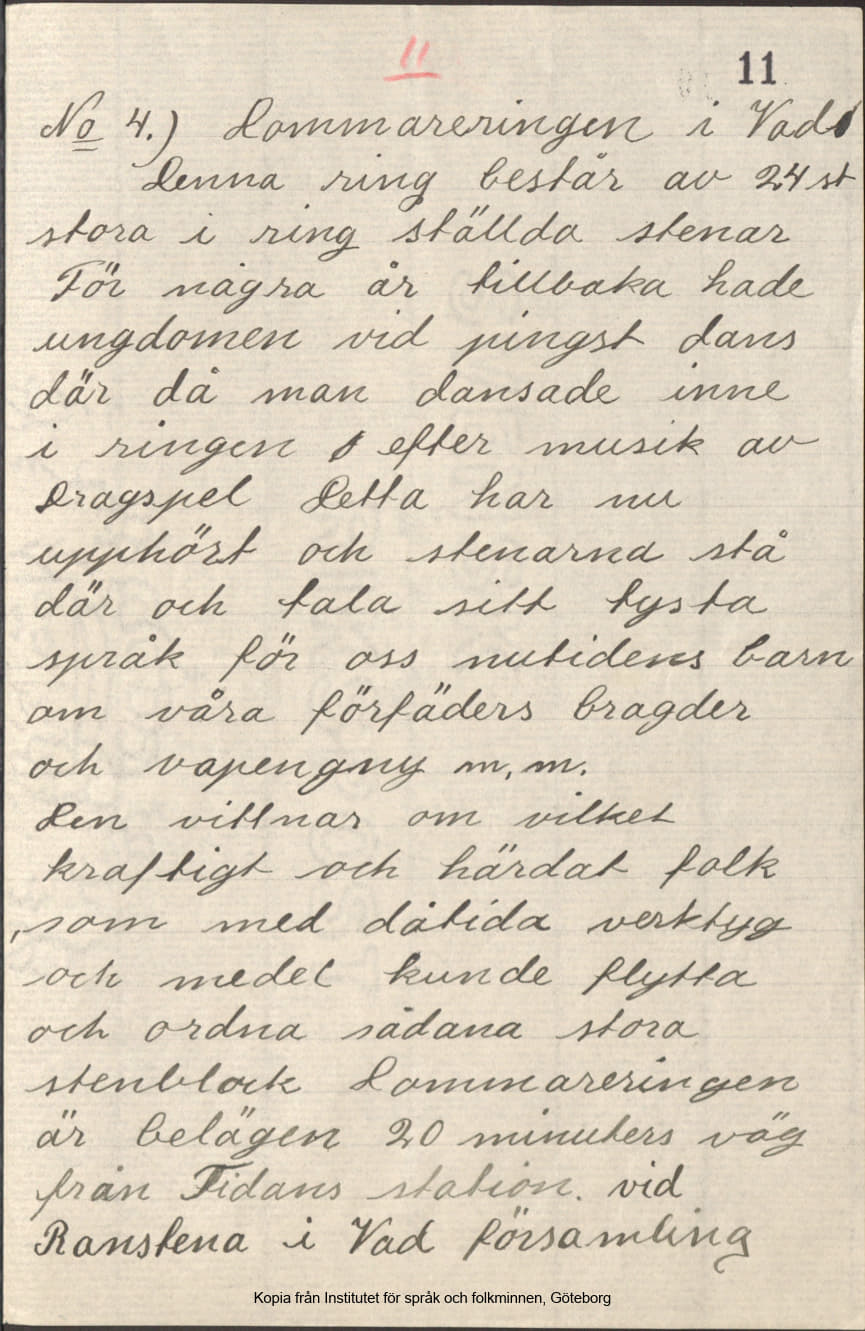 11
11
No 4.) Dommareringen i Vad
Denna ring består av 24 st
stora i ring ställda stenar
För några år tillbaka hade
ungdomen vid pingst dans
där då man dansade inne
i ringen efter musik av
Dragspel Detta har nu
upphört och stenarna stå
där och tala sitt tysta
språk för oss nutidens barn
om våra förfäders bragder
och vapengny m.m.
Den vittnar om vilket
kraftigt och härdat folk
som med dåtida verktyg
och medel kunde flytta
och ordna sådana stora
stenblock Dommareringen
är belägen 20 minuters väg
från Tidans station. vid
Ranstena i Vad församling
Kopia från Institutet för språk och folkminnen, Göteborg